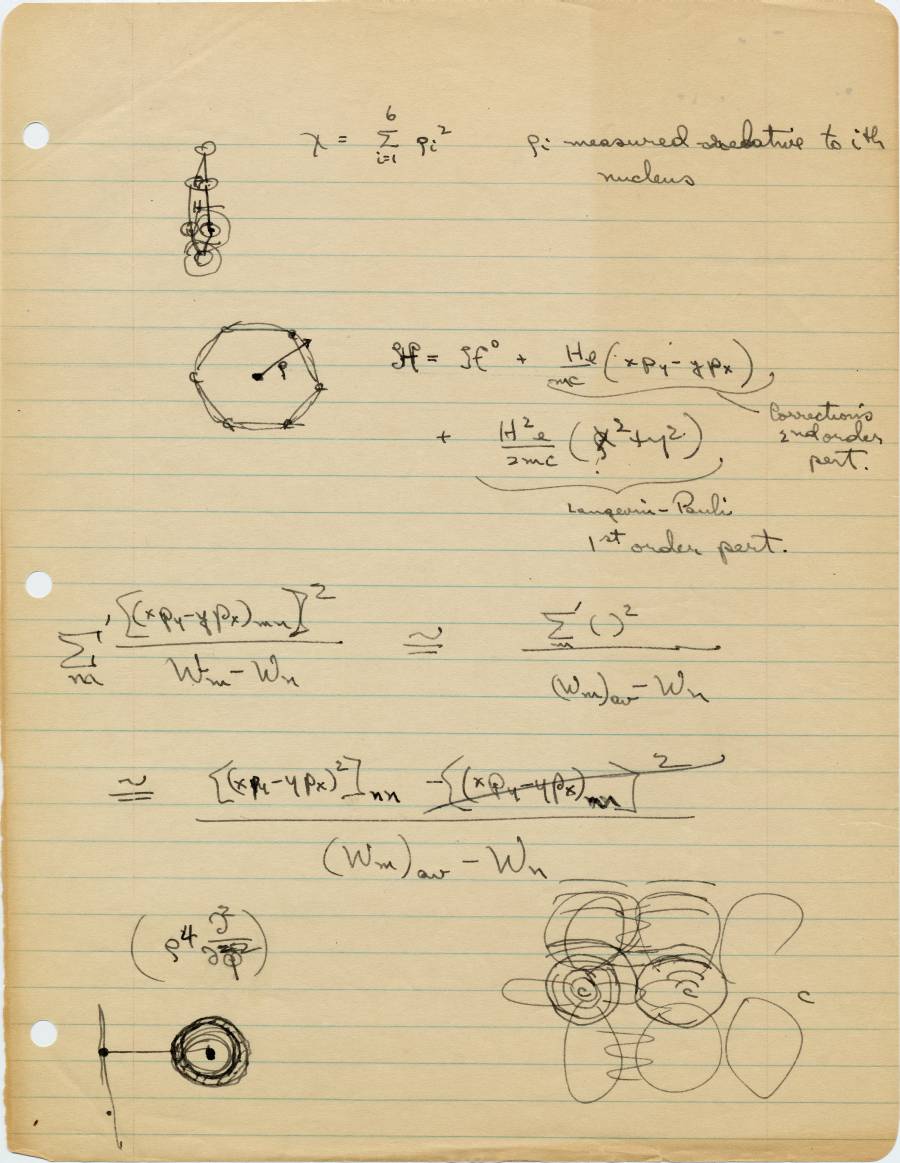 χ = Σ_{i=1}^{6} ρi²   ρi measured relative to ith
nucleus
ρ
ℋ = ℋ° + He/mc (xpy - ypx),
Correction's
2nd order
pert.
+ H²e/2mc (x² + y²),
Langevin-Pauli
1st order pert.
Σ' [(xpy - ypx)mn]² / Wm - Wn ≅ Σ'm ( )² / (Wm)av - Wn
≅ [(xpy - ypx)²]nn - [(xpy - ypx)nn]² / (Wm)av - Wn
C C C